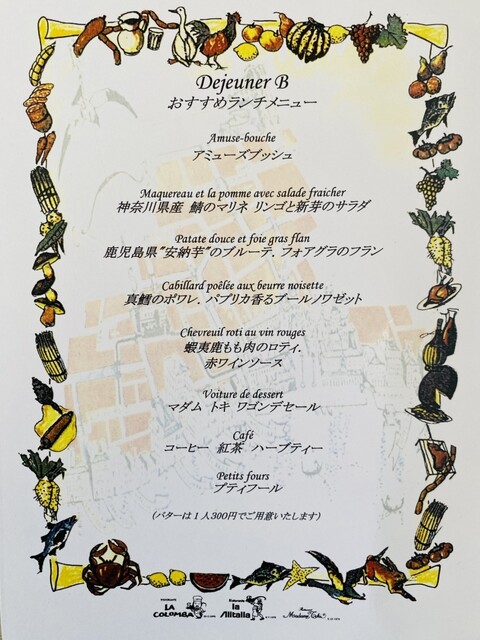 Dejeuner B
おすすめランチメニュー
Amuse-bouche
アミューズブッシュ
Maquereau et la pomme avec salade fraicher
神奈川県産 鯖のマリネ リンゴと新芽のサラダ
Patate douce et foie gras flan
鹿児島県"安納芋"のブルーテ. フォアグラのフラン
Cabillard poêlée aux beurre noisette
真鱈のポワレ. パプリカ香るブールノワゼット
Chevreuil roti au vin rouges
蝦夷鹿もも肉のロティ.
赤ワインソース
Voiture de dessert
マダム トキ ワゴンデセール
Café
コーヒー 紅茶 ハーブティー
Petits fours
プティフール
(バターは1人300円でご用意いたします)
LA COLOMBA
la Alitalia